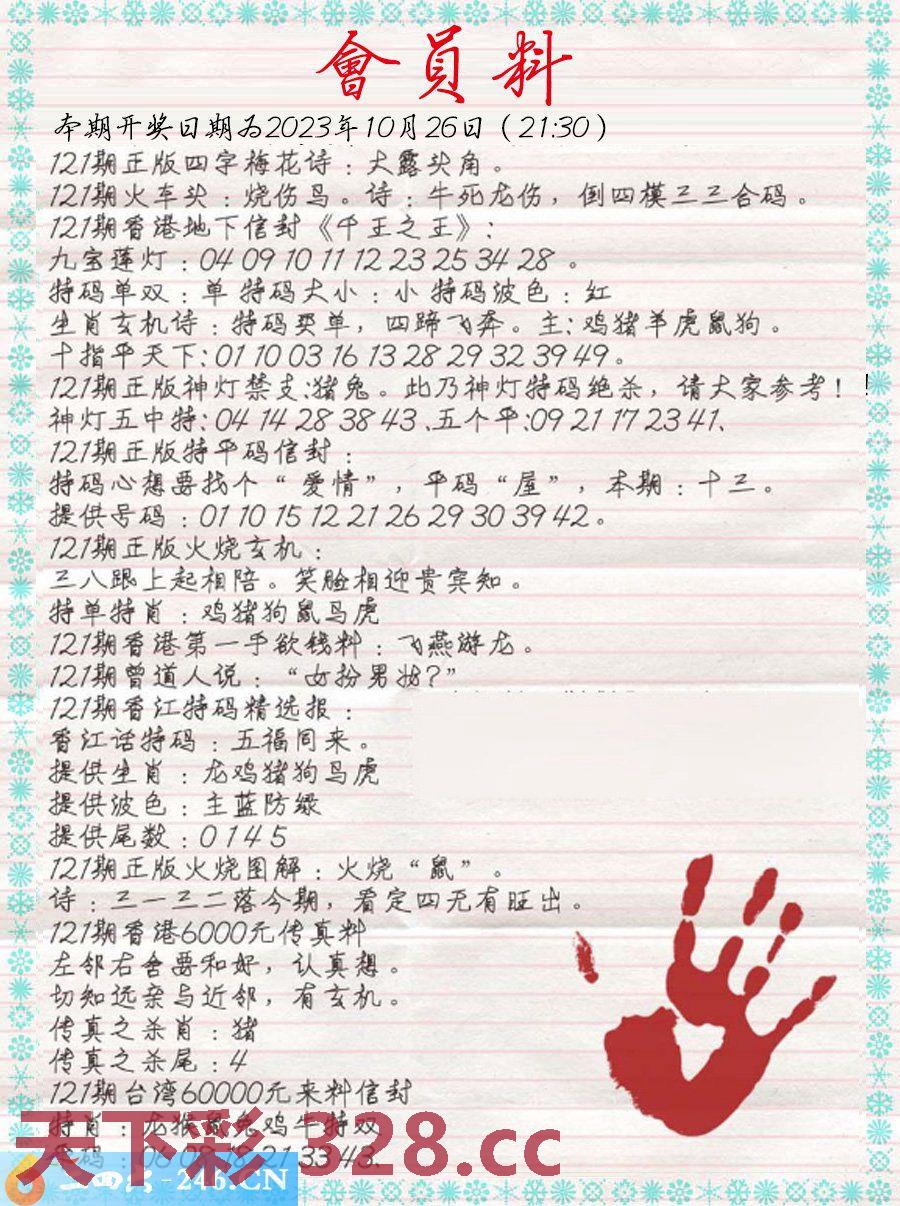 會員料
本期开奖日期为2023年10月26日（21:30）
121期正版四字梅花诗：大露头角。
121期火车头：烧伤鸟。诗：牛死龙伤，倒四模三三合码。
121期香港地下信封《千王之王》:
九宝莲灯：04 09 10 11 12 23 25 34 28 。
特码单双：单 特码大小：小 特码波色：红
生肖玄机诗：特码买单，四蹄飞奔。主:鸡猪羊虎鼠狗。
十指平天下:01 10 03 16 13 28 29 32 39 49。
121期正版神灯禁支:猪兔。此乃神灯特码绝杀，请大家参考！!
神灯五中特:04 14 28 38 43 、五个平:09 21 17 23 41、
121期正版特平码信封：
特码心想要找个“ 爱情”，平码“屋”，本期：十三。
提供号码：01 10 15 12 21 26 29 30 39 42。
121期正版火烧玄机：
三八跟上起相陪。笑脸相迎贵宾知。
特单特肖：鸡猪狗鼠马虎
121期香港第一手欲钱料：飞燕游龙。
121期曾道人说：“女扮男妆?”
121期香江特码精选报：
香江话特码：五福同来。
提供生肖：龙鸡猪狗马虎
提供波色：主蓝防绿
提供尾数：0 1 4 5
121期正版火烧图解：火烧“鼠”。
诗：三一三二落今期，看定四无有旺出。
121期香港6000元传真料
左邻右舍要和好，认真想。
切知远亲与近邻，有玄机。
传真之杀肖：猪
传真之杀尾：4
121期台湾60000元来料信封
特肖：龙猴鼠兔鸡牛特双
天下彩 328.cc
-246.CN